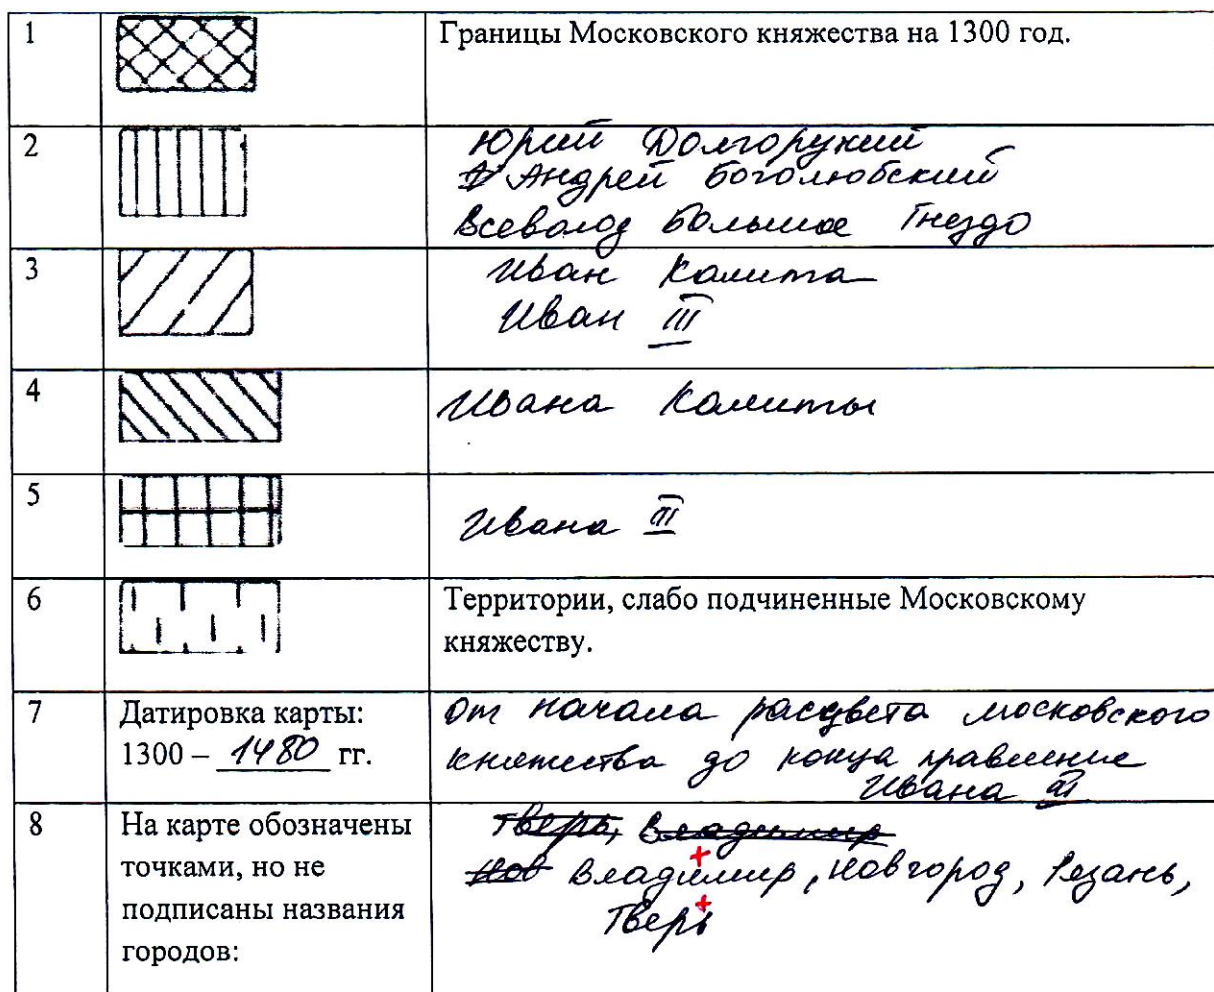 1 Границы Московского княжества на 1300 год.
2 Юрий Долгорукий
Андрей Боголюбский
Всеволод Большое Гнездо
3 Иван Калита
Иван III
4 Ивана Калиты
5 Ивана III
6 Территории, слабо подчиненные Московскому
княжеству.
7 Датировка карты:
1300 – 1480 гг.
от начала расцвета московского
княжества до конца правление
Ивана III
8 На карте обозначены
точками, но не
подписаны названия
городов:
Тверь, Владимир
Нов Владимир, Новгород, Рязань,
Тверь